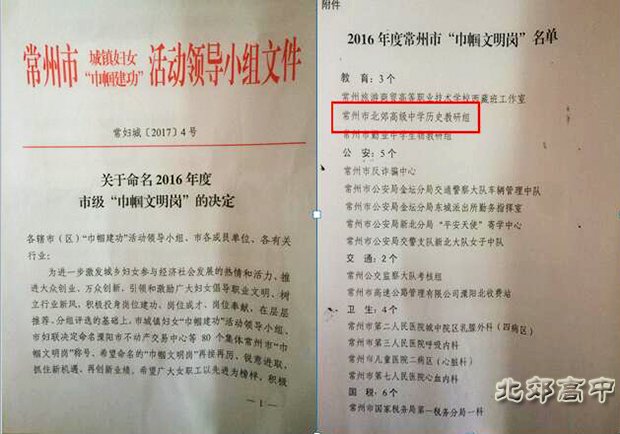 常州市 城镇妇女“巾帼建功” 活动领导小组文件
常妇城〔2017〕4号
关于命名2016年度
市级“巾帼文明岗”的决定
各辖市（区）“巾帼建功”活动领导小组、市各成员单位、各有关
行业：
为进一步激发城乡妇女参与经济社会发展的热情和活力、推
进大众创业、万众创新、引领和激励广大妇女倡导职业文明、树
立行业新风、积极投身岗位建功、岗位成才、岗位奉献，在层层
推荐、分组评选的基础上，市城镇妇女“巾帼建功”活动领导小组、
市妇联决定命名溧阳市不动产交易中心等80个集体常州市“巾
帼文明岗”称号、希望命名的“巾帼文明岗”再接再厉、锐意进取、
抓住新机遇、再创新业绩。希望广大女职工以先进为榜样、积极
— 1 —
附件
2016年度常州市“巾帼文明岗”名单
教育：3个
常州旅游商贸高等职业技术学校西藏班工作室
常州市北郊高级中学历史教研组
常州市勤业中学生物教研组
公安：5个
常州市反诈骗中心
常州市公安局金坛分局交通警察大队车辆管理中队
常州市公安局金坛分局东城派出所勤务指挥室
常州市公安局新北分局“平安天使”寄学中心
常州市公安局交警支队新北大队女子中队
交通：2个
常州公交监察大队考核组
常州市高速公路管理有限公司溧阳北收费站
卫生：4个
常州市第二人民医院城中院区乳腺外科（四病区）
常州市第三人民医院呼吸内科
常州市儿童医院二病区（心脏科）
常州市第七人民医院心血内科
国税：6个
常州市国家税务局第一税务分局一科
北郊高中